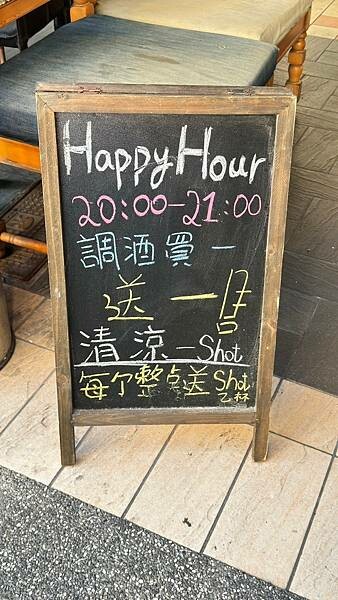 Happy Hour
20:00-21:00
調酒買一
送一
清涼一Shot
每个整点送Shot
乙杯